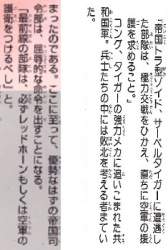 帝国トラ型ゾイド、サーベルタイガーに遭遇し
た部隊は、極力交戦をひかえ、直ちに空軍の掩
護を求めること。
コング、タイガーの強力メカに追いこまれた共
和国軍。兵士たちの中には敗北を考える者までい
た。
まったのである。ここに至って、優勢なはずの帝国司
令部は、屈辱的な命令を出すことになる。
「最前線の部隊は、必ずレッドホーンもしくは空軍の
護衛をつけるべし」と。